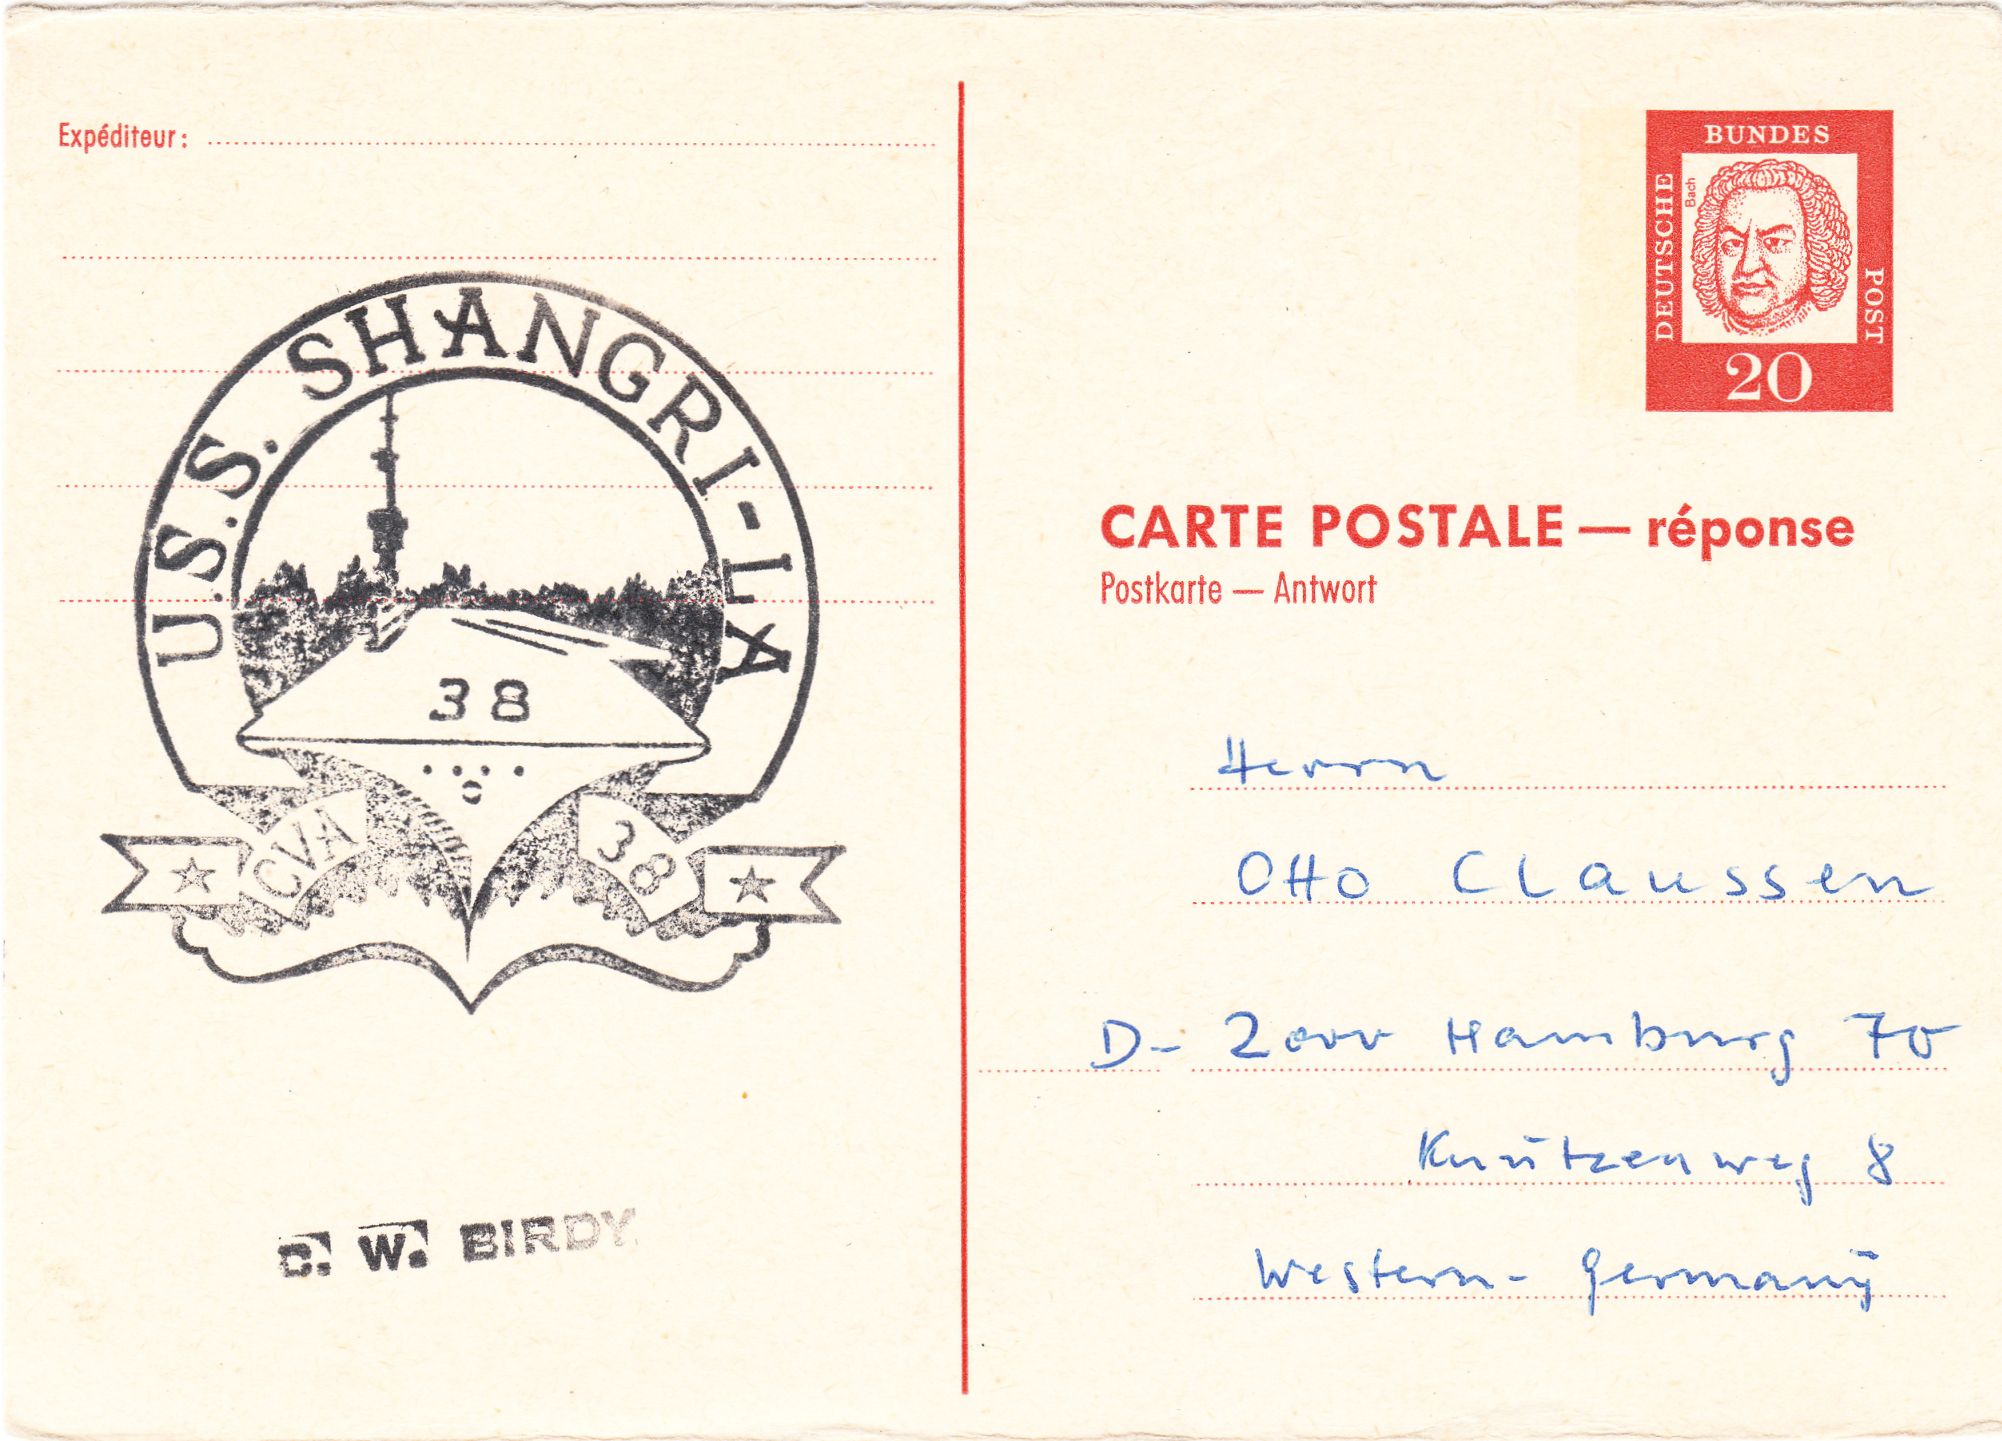 Expéditeur:
U.S.S. SHANGRI-LA
38
CVA 38
C. W. BIRDY
DEUTSCHE BUNDES POST
Bach
20
CARTE POSTALE — réponse
Postkarte — Antwort
Herrn
Otto Claussen
D- 2000 Hamburg 70
Knützenweg 8
Western-Germany